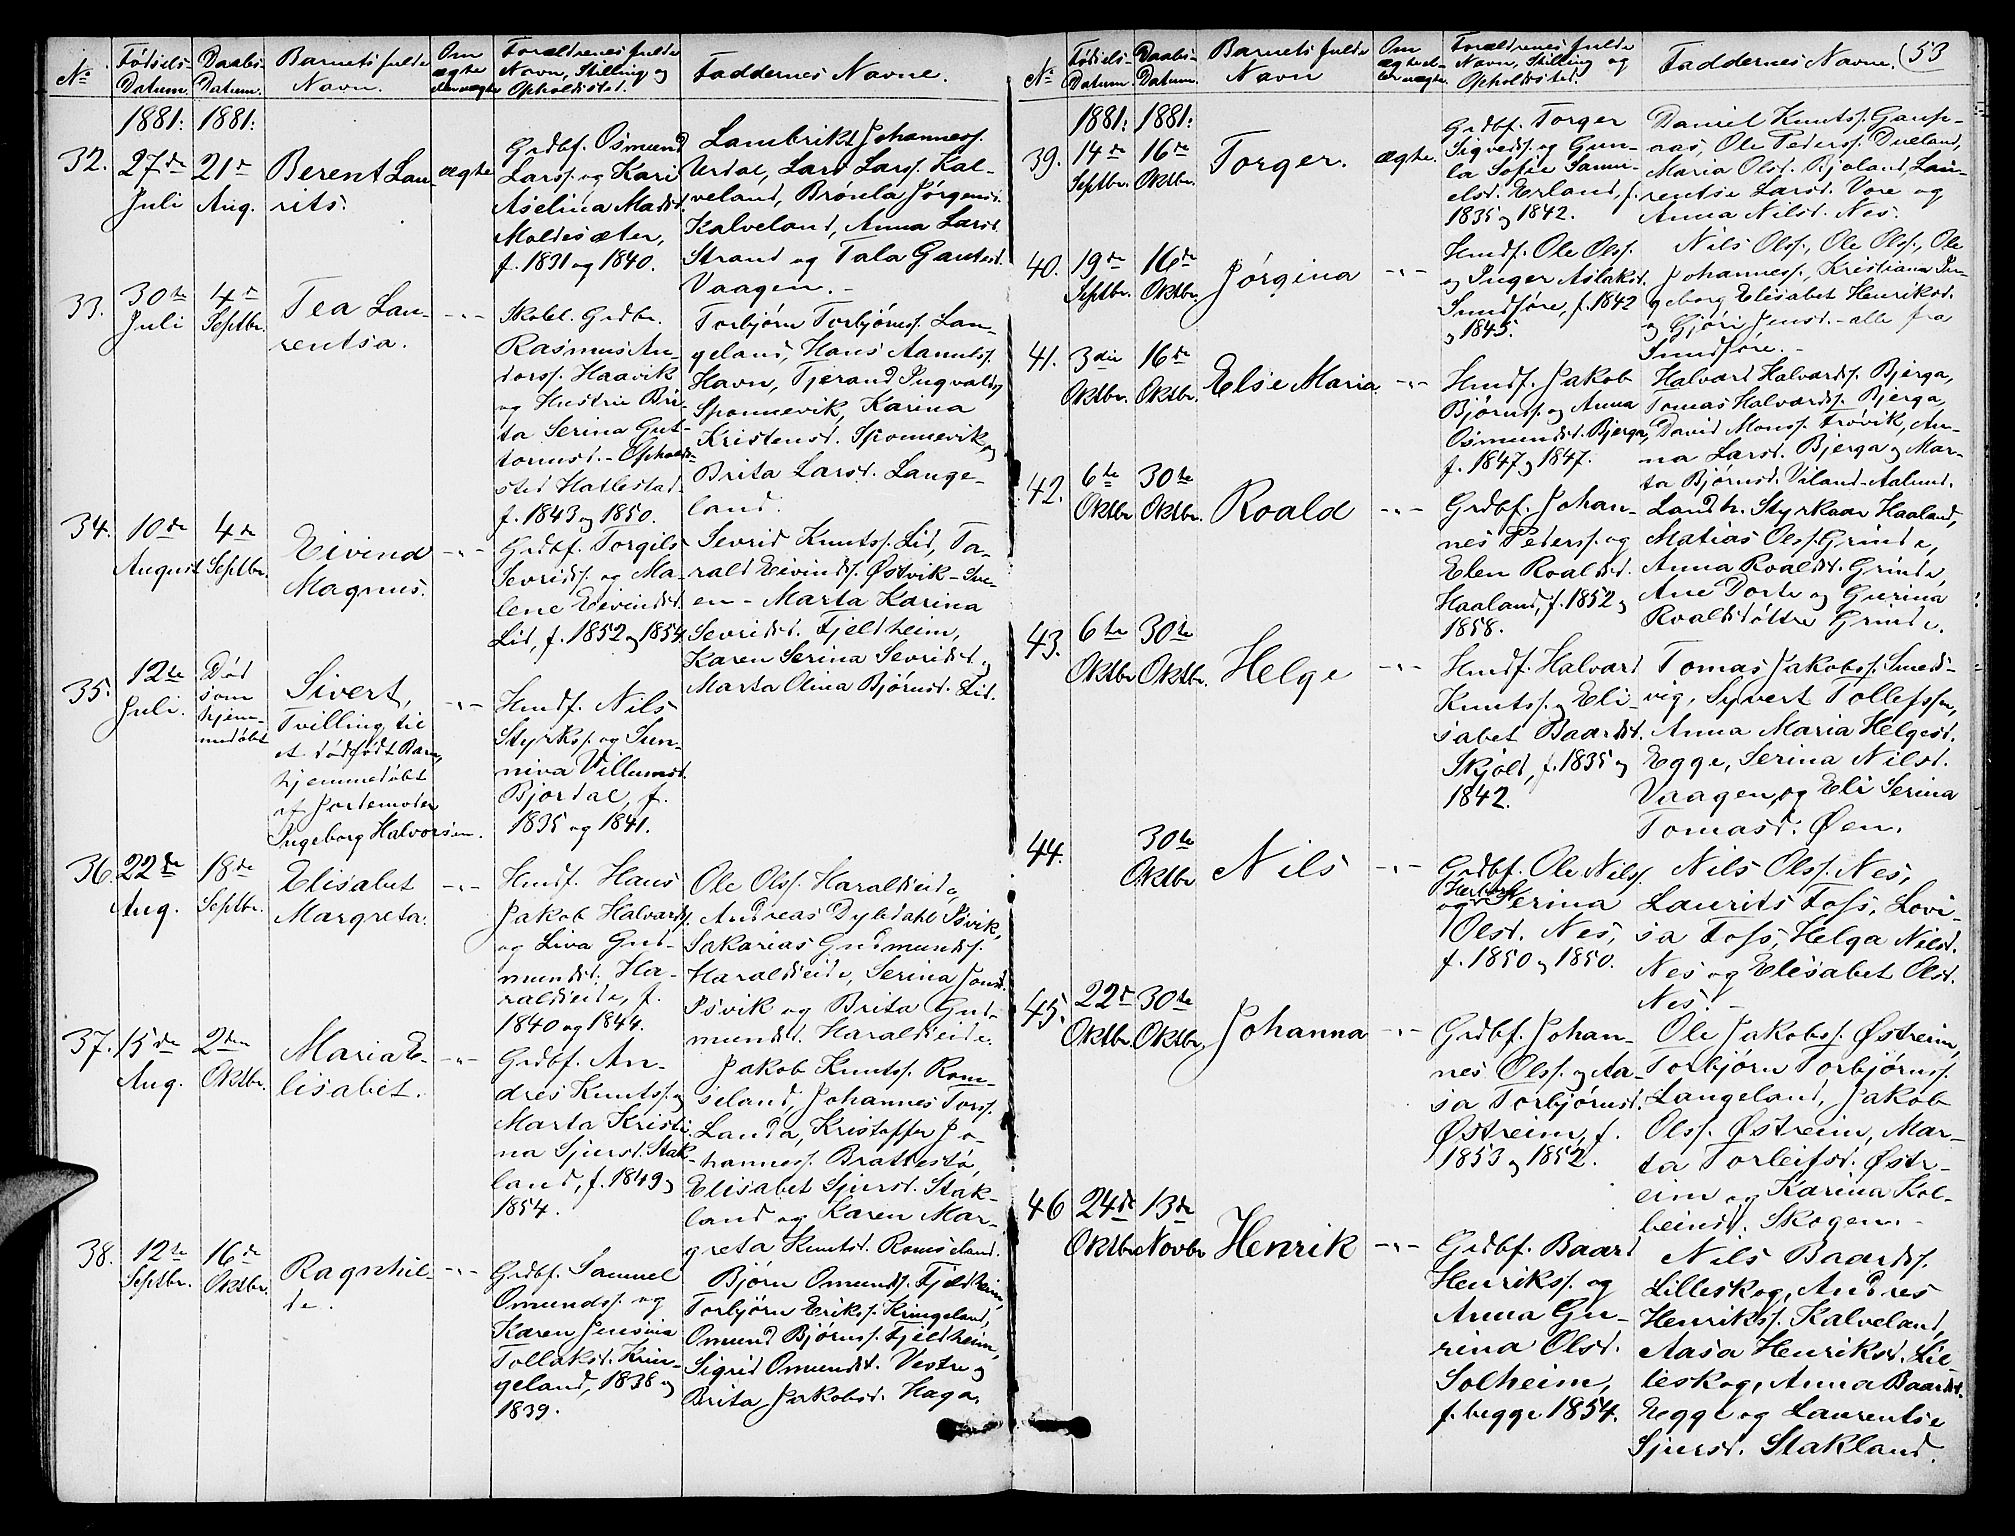 No.
Fødsels-
Datum.
Daabs-
Datum.
Barnets fulde
Navn.
Om
ægte
eller uægte
Forældrenes fulde
Navn, Stilling og
Opholdssted.
Faddernes Navne.
1881: 1881:
32.
27de
Juli
21de
Aug.
Berent Lau-
rits.
ægte
Grdbf. Osmund
Larss. og Kari
Aselina Madsd.
Moldesæter,
f. 1831 og 1840.
Lambrikt Johanness.
Urdal, Lars Larss. Kal-
veland, Brønla Jørgensd.
Kalveland, Anna Larsd.
Strand og Tala Gautesd.
Vaagen.
33.
30te
Juli
4de
Septbr.
Tea Lau-
rentsa.
-"-
Skoll. Grdbr.
Rasmus An-
dorss. Haavik
og Hustru Bri-
ta Serina Gut-
tormsd. - Opholds-
sted Hatlestad.
f. 1843 og 1850.
Torbjørn Torbjørnss. Lan-
geland, Hans Aanuls.
Havn, Tjerand Ingvalds.
Sponnevik, Karina
Kristensd. Sponnevik og
Brita Larsd. Lange-
land.
34.
10de
August
4de
Septbr.
Eivind
Magnus.
-"-
Grdbf. Torgils
Sevrids. og Ma-
lene Eivindsd.
Lid, f. 1852 og 1854
Sevrid Knuts. Lid, Ta-
rald Eivinds. Østvik - Sve-
en - Marta Karina
Sevridsd. Fjeldheim,
Karen Serina Sevridsd. og
Marta Olina Bjørnsd. Lid.
35.
12te
Juli.
Død
som
hjem-
medøbt
Sivert,
Tvilling til
et dødfødt Barn,
hjemmedøbt
af Jordemoder
Ingeborg Halvorsen.
-"-
Hmdf. Nils
Styrkss. og Sun-
niva Villumsd.
Bjordal, f.
1835 og 1841.
36.
22de
Aug.
18de
Septbr.
Elisabet
Margreta.
-"-
Hmdf. Hans
Jakob Halvards.
og Liva Gud-
mundsd. Ha-
raldseide, f.
1840 og 1844.
Ole Olss. Haraldseide,
Andreas Dybdahl Isvik,
Sakarias Gudmunds.
Haraldseide, Serina Jonsd.
Isvik og Brita Gud-
mundsd. Haraldseide.
37.
15de
Aug.
2den
Oktbr.
Maria E-
lisabet.
-"-
Grdbf. An-
dres Knutss. og
Marta Kristi-
na Sjursd. Stak-
land, f. 1849 og
1854.
Jakob Knutss. Rom-
seland, Johannes Torss.
Landa, Kristoffer Jo-
hanness. Brattestø,
Elisabet Sjursd. Stak-
land og Karen Mar-
greta Knutsd. Romseland.
38.
12te
Septbr.
16de
Oktbr.
Ragnhil-
de.
-"-
Grdbf. Samuel
Omundss. og
Karen Jensina
Tollaksd. Krin-
geland, 1838 og
1839.
Bjørn Omunds. Fjeldheim,
Torbjørn Erikss. Kringeland,
Omund Bjørnss. Fjeldheim,
Sigrid Omundsd. Vestre og
Brita Jakobsd. Haga.
No.
Fødsels-
Datum.
Daabs-
Datum.
Barnets fulde
Navn
Om
ægte el-
ler uægte.
Forældrenes fulde
Navn, Stilling og
Opholdssted.
Faddernes Navne.
53
1881: 1881:
39.
14de
Septbr.
16de
Oktbr.
Torger.
ægte.
Grdbf. Torger
Sigveds. og Gun-
la Sofie Samu-
elsd. Erland, f.
1835 og 1842.
Daniel Knutss. Gaup-
aas, Ole Peders. Dueland,
Maria Olsd. Bjoland, Lau-
rentse Larsd. Vore og
Anna Nilsd. Nes.
40.
19de
Septbr.
16de
Oktbr.
Jørgina
-"-
Hmdf. Ole Olss.
og Inger Aslaksd.
Sundføre, f. 1842
og 1845.
Nils Olss., Ole Olss., Ole
Johanness., Kristiana In-
geborg Elisabet Henriksd.
og Gjøri Jensd. - alle fra
Sundføre. -
41.
3die
Oktbr.
16de
Oktbr.
Else Maria
-"-
Hmdf. Jakob
Bjørnss. og Anna
Osmundsd. Bjerga,
f. 1847 og 1847.
Halvard Halvards. Bjerga,
Tomas Halvards. Bjerga,
David Monss. Frøvik, An-
na Larsd. Bjerga og Mar-
ta Bjørnsd. Viland-Aalund.
42.
6te
Oktbr
30te
Oktbr.
Roald
-"-
Grdbf. Johan-
nes Peders. og
Elen Roaldsd.
Haaland, f. 1852 og
1858.
Landh. Styrkaar Haaland,
Matias Olss. Grinde,
Anna Roaldsd. Grinde,
Ane Dorte og Gurina
Roaldsdøttre Grinde.
43.
6te
Oktbr
30te
Oktbr.
Helge
-"-
Hmdf. Halvard
Knutss. og Eli-
sabet Baardsd.
Skjold, f. 1835 og
1842.
Tomas Jakobss. Smeds-
vig, Syvert Tollefssen,
Anna Maria Helgesd.
Egge, Serina Nilsd.
Vaagen, og Eli Serina
Tomasd. Øen.
44.
30te
Oktbr
Nils
-"-
Grdbf. Ole Nilss.
og Serina
Olsd. Nes,
f. 1850 og 1850.
Nils Olss. Nes,
Laurits Foss, Lovi-
sa Foss, Helga Nilsd.
Nes og Elisabet Olsd.
Nes. -
45.
22de
Oktbr.
30te
Oktbr.
Johanna
-"-
Grdbf. Johan-
nes Olss. og Aa-
sa Torbjørnsd.
Østreim, f.
1853 og 1852.
Ole Jakobss. Østreim,
Torbjørn Torbjørnss.
Langeland, Jakob
Olss. Østreim, Mar-
ta Torleifsd. Østr-
eim og Karina Kol-
beinsd. Skogen. -
46
24de
Oktbr
13de
Novbr
Henrik
-"-
Grdbf. Baard
Henrikss. og
Anna Gu-
rina Olsd.
Solheim,
f. begge 1854.
Nils Baards.
Lilleskog, Andres
Henrikss. Kalveland,
Aasa Henriksd. Lil-
leskog, Anna Baardsd.
Egge og Laurentse
Sjursd. Stakland.